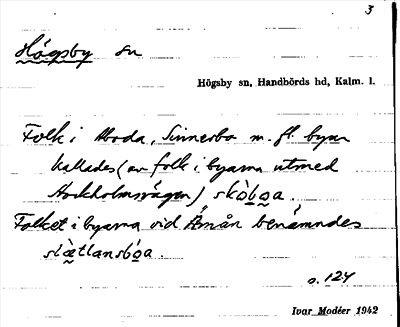 3
Högsby sn
Högsby sn, Handbörds hd, Kalm. l.
Folk i Aboda, Sinnerbo m. fl. byar
kallades (av folk i byarna utmed
Stockholmsvägen) skòboa.
Folket i byarna vid Åmån benämndes
slætlansboa.
s. 124
Ivar Modéer 1942